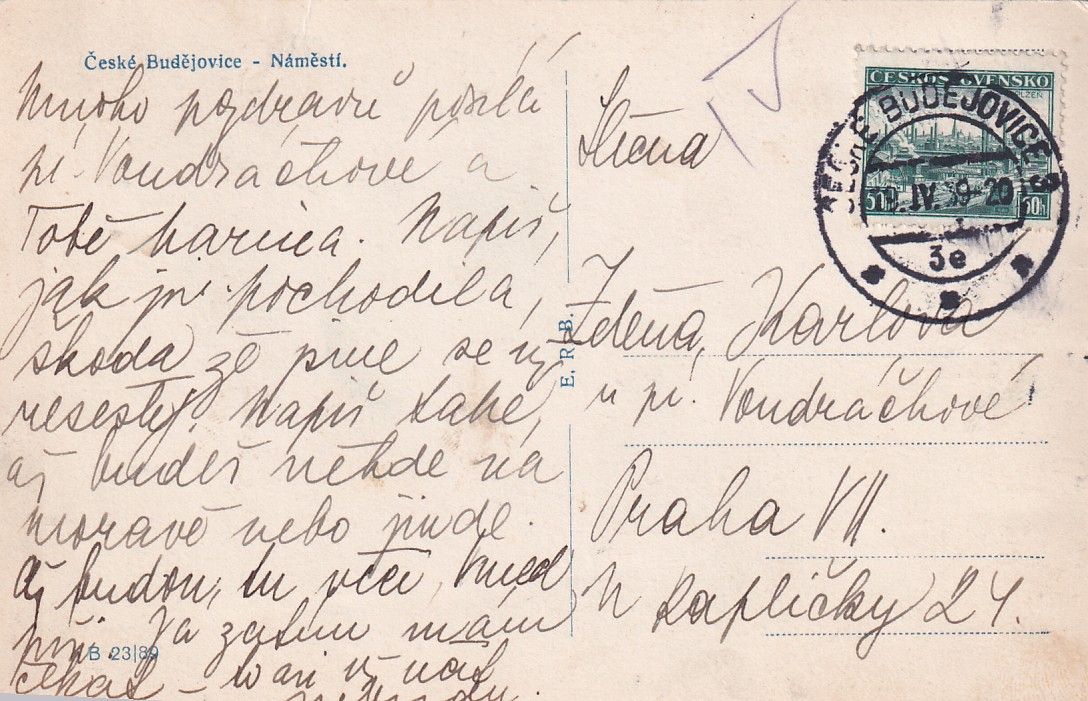 České Budějovice - Náměstí.
Mnoho pozdravů posílá
pí. Vondráčkové a
Tobě Mařka. Napiš,
jak jsi pochodila,
škoda že jsme se
nesesly. Napiš také,
až budeš někde na
Moravě nebo jinde.
Až budou, tu věci, hned
piš. Já zatím mám
čekat -
B 23|89
E. R. B.
Slečna
Zdena Karlova
u pí. Vondráčkové
Praha VII.
U Kapličky 24.
ČESKOSLOVENSKO
PLZEŇ
50h
ČESKÉ BUDĚJOVICE 3
9. IV. 39-20
3e